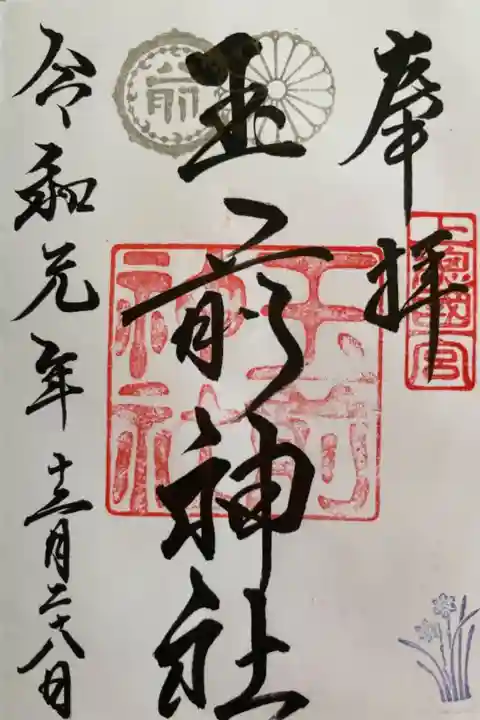 奉拝
上総国一宮
玉前神社
玉前神社
前
令和元年十二月二十八日